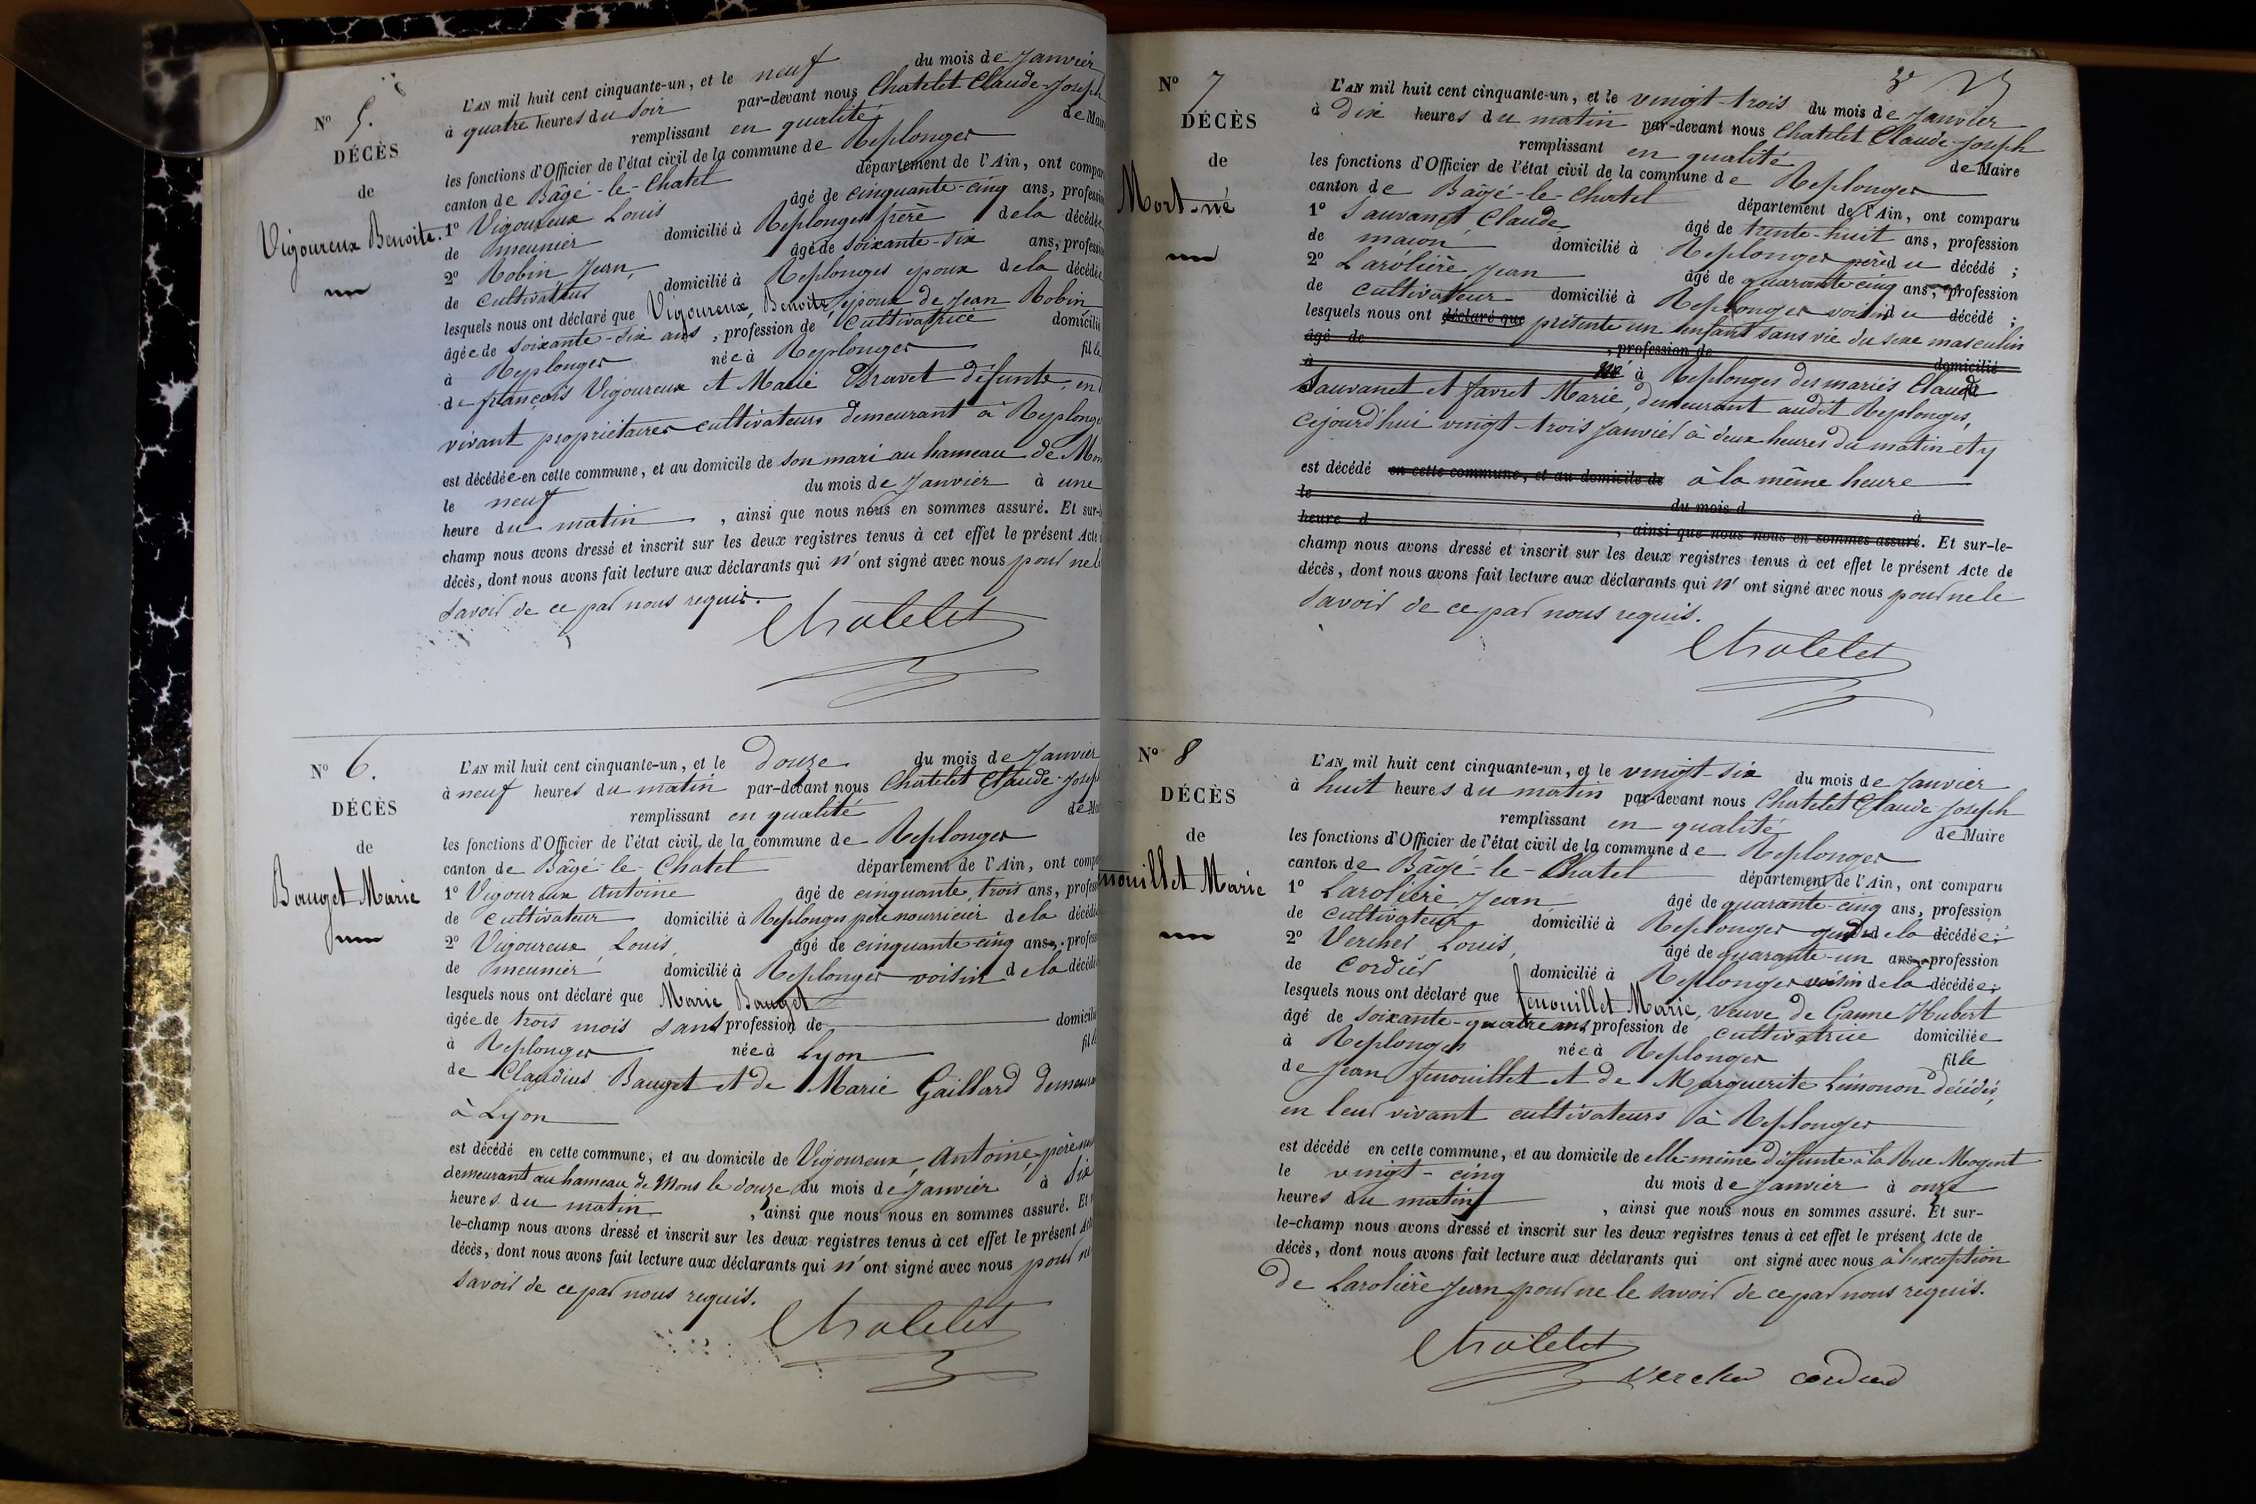 N° 5.
DÉCÈS
de
Vigoureux Benoite.
L'AN mil huit cent cinquante-un, et le neuf du mois de Janvier
à quatre heures du soir par-devant nous Chatelet Claude-Joseph
remplissant en qualité de Mair
les fonctions d'Officier de l'état civil de la commune de Replonges
canton de Bâgé-le-Chatel département de l'Ain, ont compar
1° Vigoureux Louis âgé de cinquante-cinq ans, profession
de meunier domicilié à Replonges frère de la décédée
2° Robin Jean, âgé de soixante-six ans, profession
de cultivateur domicilié à Replonges époux de la décédée
lesquels nous ont déclaré que Vigoureux, Benoite, épouse de Jean Robin
âgée de soixante-six ans, profession de cultivatrice domicilié
à Replonges née à Replonges fille
de françois Vigoureux et Marie Bravet défunts, en
vivant propriétaires cultivateurs demeurant à Replonge
est décédée en cette commune, et au domicile de son mari au hameau de Mon
le neuf du mois de Janvier à une
heure du matin, ainsi que nous nous en sommes assuré. Et sur-
champ nous avons dressé et inscrit sur les deux registres tenus à cet effet le présent Acte
décès, dont nous avons fait lecture aux déclarants qui n'ont signé avec nous pour ne l
savoir de ce par nous requis.
Chatelet
N° 6.
DÉCÈS
de
Bauget Marie
L'AN mil huit cent cinquante-un, et le Douze du mois de Janvier
à neuf heures du matin par-devant nous Chatelet Claude-Joseph
remplissant en qualité de Ma
les fonctions d'Officier de l'état civil de la commune de Replonges
canton de Bâgé-le-Chatel département de l'Ain, ont comp
1° Vigoureux Antoine âgé de cinquante, trois ans, profess
de cultivateur domicilié à Replonges père nourricier de la décédé
2° Vigoureux, Louis, âgé de cinquante-cinq ans, profess
de meunier domicilié à Replonges voisin de la décédé
lesquels nous ont déclaré que Marie Bauget
âgée de trois mois sans profession de domicilié
à Replonges née à Lyon fille
de Claudius Bauget et de Marie Gaillard demeura
à Lyon
est décédé en cette commune, et au domicile de Vigoureux, Antoine, père nou
demeurant au hameau de Mons le douze du mois de Janvier à six
heures du matin, ainsi que nous nous en sommes assuré. Et
le-champ nous avons dressé et inscrit sur les deux registres tenus à cet effet le présent Act
décès, dont nous avons fait lecture aux déclarants qui n'ont signé avec nous pour ne
savoir de ce par nous requis.
Chatelet
3e
N° 7
DÉCÈS
de
Mort-né
L'AN mil huit cent cinquante-un, et le vingt-trois du mois de Janvier
à dix heures du matin par-devant nous Chatelet Claude-Joseph
remplissant en qualité de Maire
les fonctions d'Officier de l'état civil de la commune de Replonges
canton de Bâgé-le-Chatel département de l'Ain, ont comparu
1° Sauvanet, Claude âgé de trente-huit ans, profession
de maçon domicilié à Replonges père du décédé ;
2° Larolière Jean âgé de quarante cinq ans, profession
de cultivateur domicilié à Replonges voisin du décédé ;
lesquels nous ont déclaré que présenté un enfant sans vie du sexe masculin
âgé de , profession de domicilié
à né à Replonges des mariés Claude
Sauvanet et favret Marie, demeurant audit Replonges,
cejourd'hui vingt-trois Janvier à deux heures du matin et y
est décédé en cette commune, et au domicile de à la même heure
le du mois d à
heure d , ainsi que nous nous en sommes assuré. Et sur-le-
champ nous avons dressé et inscrit sur les deux registres tenus à cet effet le présent Acte de
décès, dont nous avons fait lecture aux déclarants qui n'ont signé avec nous pour ne le
savoir de ce par nous requis.
Chatelet
N° 8
DÉCÈS
de
nouillet Marie
L'AN mil huit cent cinquante-un, et le vingt-six du mois de Janvier
à huit heures du matin par-devant nous Chatelet Claude-Joseph
remplissant en qualité de Maire
les fonctions d'Officier de l'état civil de la commune de Replonges
canton de Bâgé-le-Chatel département de l'Ain, ont comparu
1° Larolière, Jean âgé de quarante-cinq ans, profession
de cultivateur domicilié à Replonges gendre de la décédée ;
2° Vercher, Louis, âgé de quarante-un ans, profession
de cordier domicilié à Replonges voisin de la décédée ;
lesquels nous ont déclaré que fenouillet Marie, veuve de Ganne Hubert
âgé de soixante-quatre ans, profession de cultivatrice domiciliée
à Replonges née à Replonges fille
de Jean fenouillet et de Marguerite Limonon décédés,
en leur vivant cultivateurs à Replonges
est décédé en cette commune, et au domicile de elle-même défunte à la Rue Mogent
le vingt-cinq du mois de Janvier à onze
heures du matin, ainsi que nous nous en sommes assuré. Et sur-
le-champ nous avons dressé et inscrit sur les deux registres tenus à cet effet le présent Acte de
décès, dont nous avons fait lecture aux déclarants qui ont signé avec nous à l'exception
de Larolière Jean, pour ne le savoir de ce par nous requis.
Chatelet
Vercher cordier